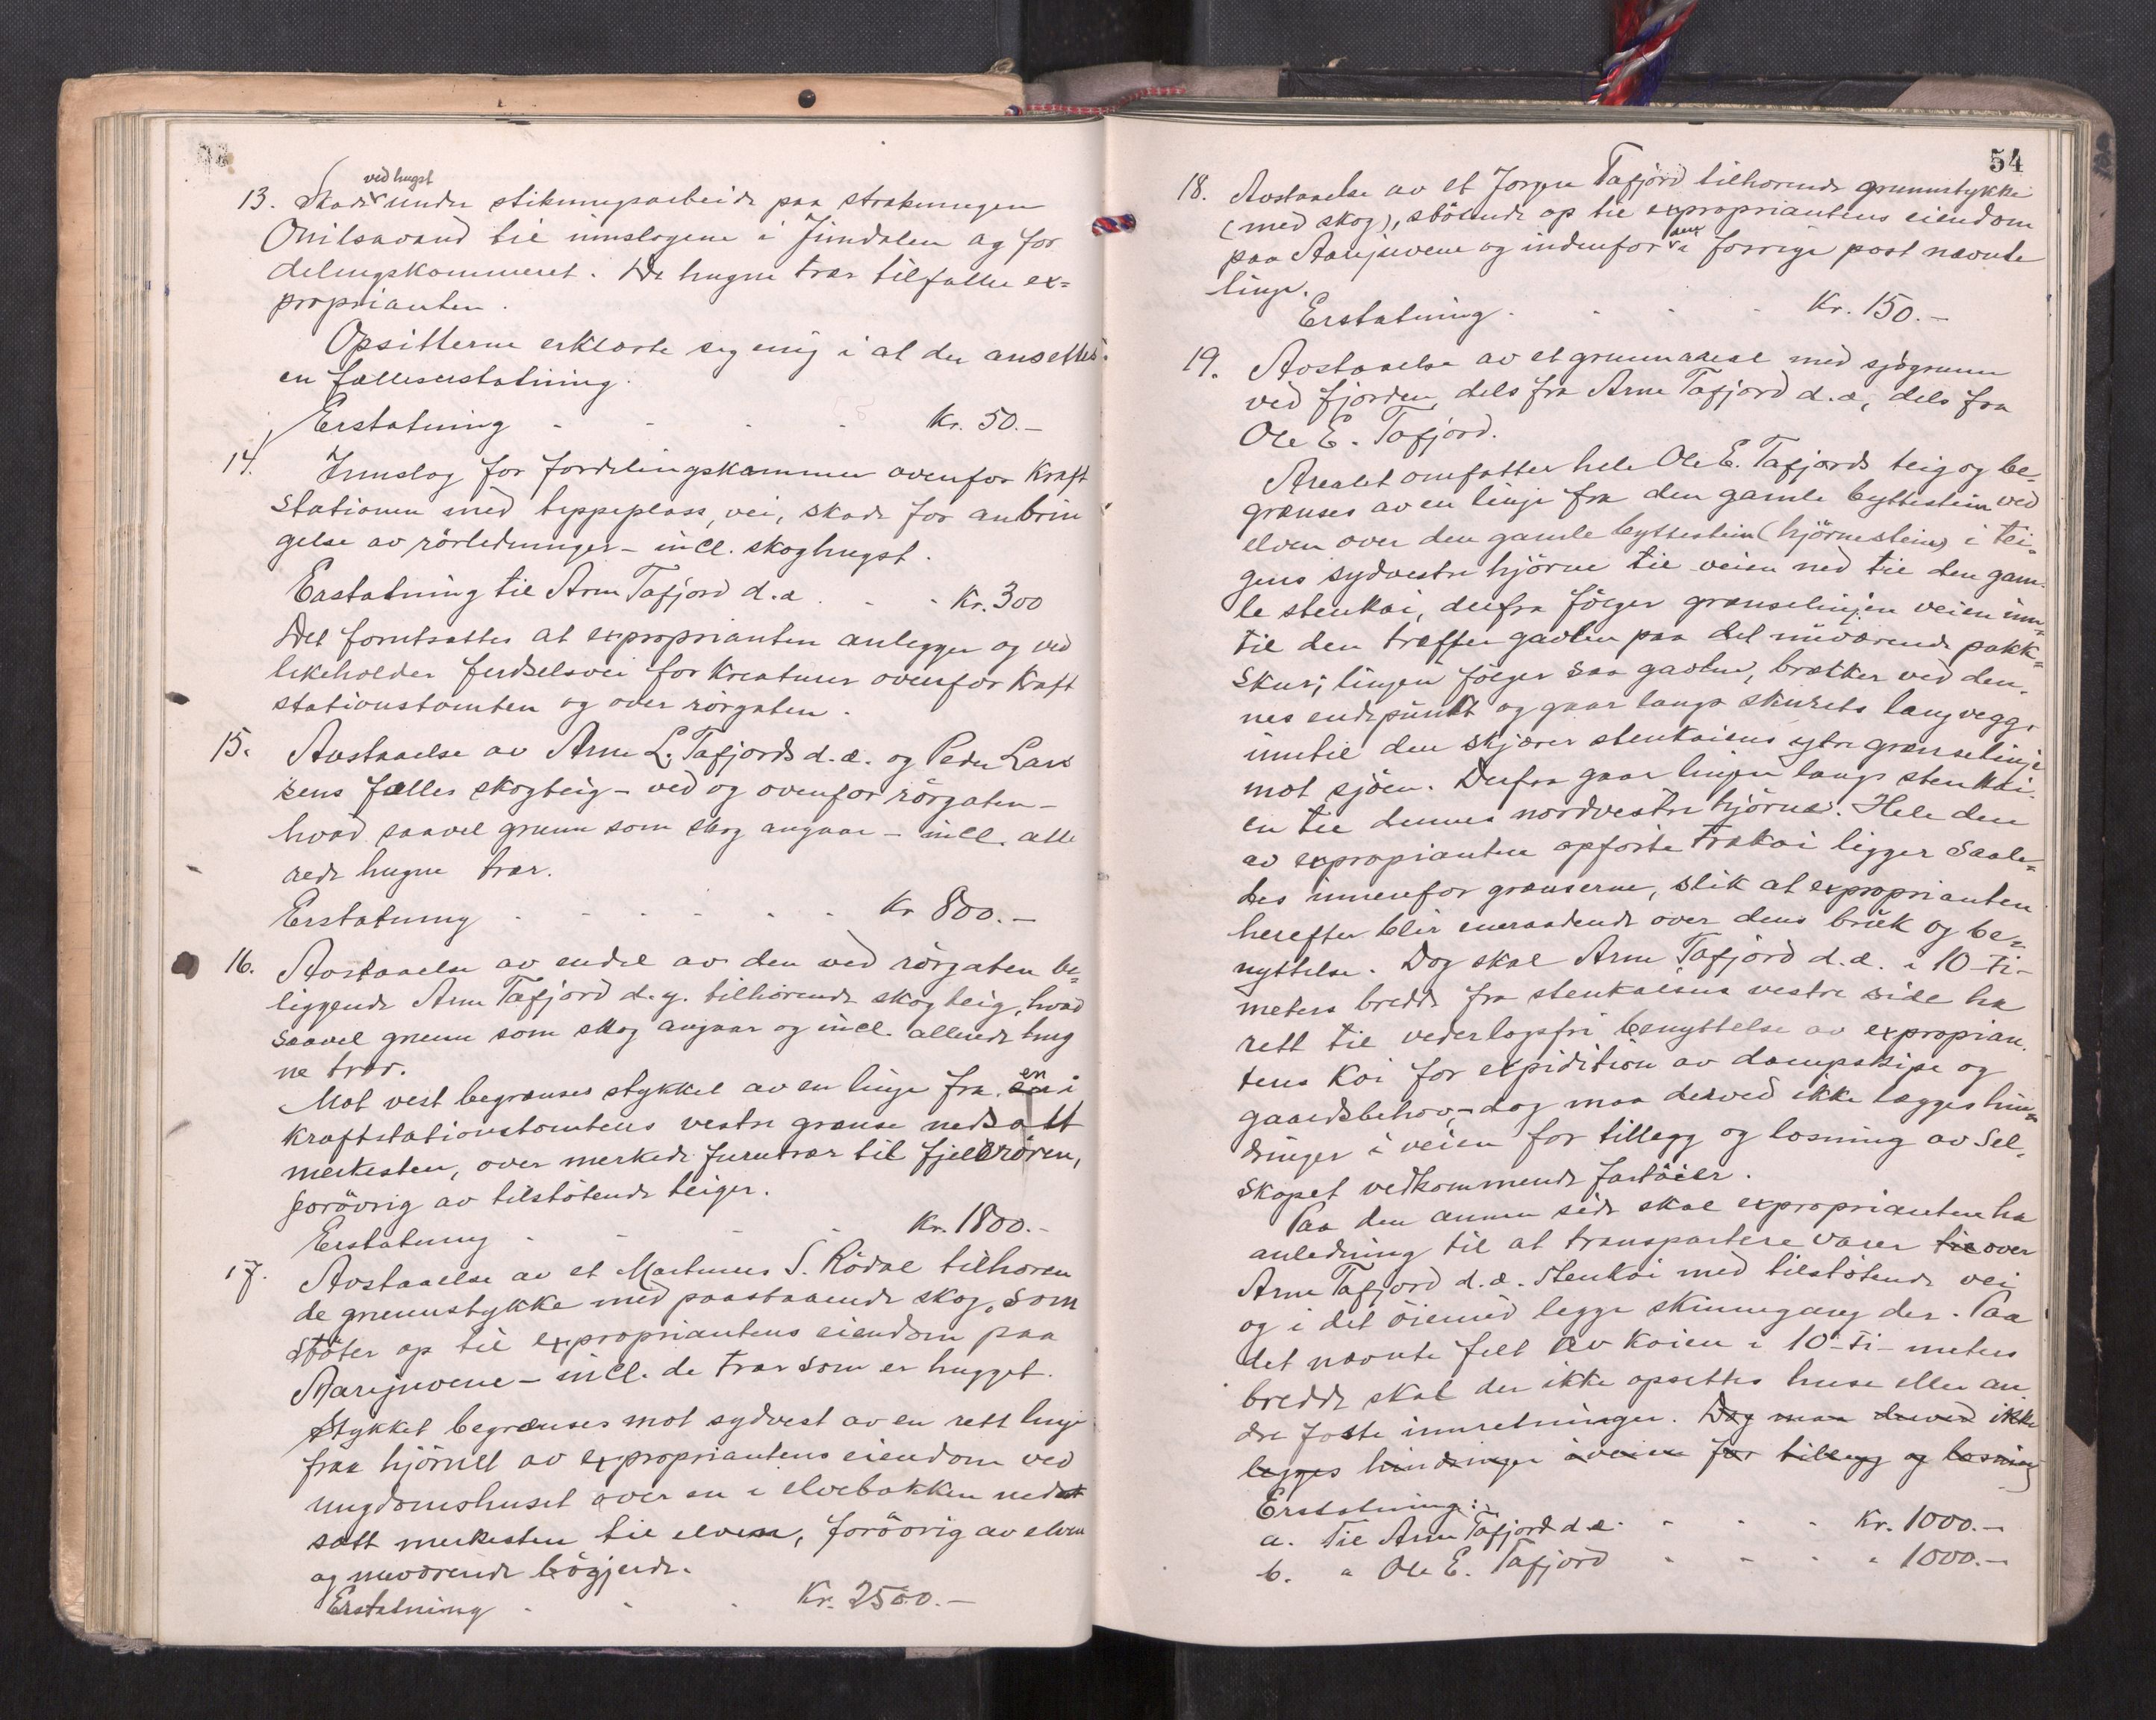 ved hugst
13. Skade under stikningsarbeide paa strækningen
Onilsavand til innslagene i Jimdalen og for
delingskammeret. De hugne trær tilfaller ex=
proprianten.
Opsitterne erklærte seg enig i at der ansettes
en fælleserstatning.
Erstatning - - - - Kr. 50.-
14. Innslag for fordelingskammer ovenfor Kraft
stationen med tippeplass, vei, skade for anbrin
gelse av rörledninger - incl. skoghugst.
Erstatning til Arne Tafjord d.æ. - - Kr. 300
Det forutsættes at exproprianten anlegger og ved
likeholder ferdselsvei for Kreaturer ovenfor Kraft
stationstomten og over rörgaten.
15. Avstaaelse av Arne L. Tafjords d.æ. og Peder Lar
sens fælles skogteig - ved og ovenfor rörgaten -
hvad saavel grunn som skog angaar - incl. alle
rede hugne trær.
Erstatning - - - - - - Kr 800.-
16. Avstaaelse av endel av den ved rörgaten be=
liggende Arne Tafjord d.y. tilhörende skogteig, hvad
saavel grunn som skog angaar og incl. allerede hug
ne trær.
Mot vest begrænses stykket av en linje fra en i
Kraftstationstomtens vestre grense nedsatt
merkesten, over merkede furutrær til fjellrören,
forövrig av tilstötende teiger.
Erstatning - - - - Kr. 1800.-
17. Avstaaelse av et Martinus S. Rödal tilhören
de grunnstykke med paastaaende skog, som
stöter op til expropriantens eiendom paa
Aarejuvene - incl. de trær som er hugget.
Stykket begrænses mot sydvest av en rett linje
fraa hjörnet av expropriantens eiendom ved
ungdomshuset over en i elvebakken ned
satt merkesten til elven, forövrig av elven
og nuværende bögjerde.
Erstatning - - - Kr. 2500.-
54
18. Avstaaelse av et Jørgen Tafjord tilhörende grunnstykke
(med skog), stötende op til expropriantens eiendom
paa Aarejuvene og indenfor den i forrige post nævnte
linje.
Erstatning - - - - Kr. 150.-
19. Avstaaelse av et grunnareal med sjögrunn
ved fjorden, dels fra Arne Tafjord d.æ, dels fra
Ole E. Tafjord.
Arealet omfatter hele Ole E. Tafjords teig og be=
grænses av en linje fra den gamle byttestein ved
elven over den gamle byttestein (hjörnestein) i tei=
gens sydvestre hjörne til veien ned til den gam=
le stenkai, derfra fölger grænselinjen veien inn=
til den træffer gavlen paa det nuværende pakk=
skur; linjen fölger saa gavlen, brækker ved den=
nes endepunkt og gaar langs skurets langvegg,
inntil den skjærer stenkaiens ytre grænselinje
mot sjöen. Derfra gaar linjen langs stenkai=
en til dennes nordvestre hjörne. Hele den
av exproprianten opförte trækai ligger saale=
des innenfor grænserne, slik at exproprianten
herefter blir eneraadende over dens bruk og be=
nyttelse. Dog skal Arne Tafjord d.æ. i 10-ti-
meters bredde fra stenkaiens vestre side ha
rett til vederlagsfri benyttelse av expropian=
tens Kai for expidition av dampskipe og
gaardsbehov, - dog maa derved ikke lægges hin=
dringer i veien for tillegg og losning av Sel=
skapet vedkommende fartöier.
Paa den annen side skal exproprianten ha
anledning til at transportere varer til over
Arne Tafjord d.æ. Stenkai med tilstötende vei
og i det öiemed legge skinnegang der. Paa
det nævnte felt av kaien i 10-ti-meters
bredde skal der ikke opsettes huse eller an
dre faste innretninger. Dog maa derved ikke
legges hindringer i veien for tillegg og losning
Erstatning:
a. Til Arne Tafjord d.æ. - - - Kr. 1000.-
b. " Ole E. Tafjord - - - " 1000.-